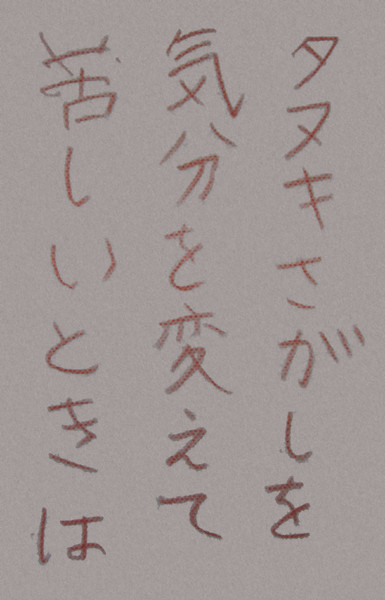 タヌキさがしを
気分を変えて
苦しいときは